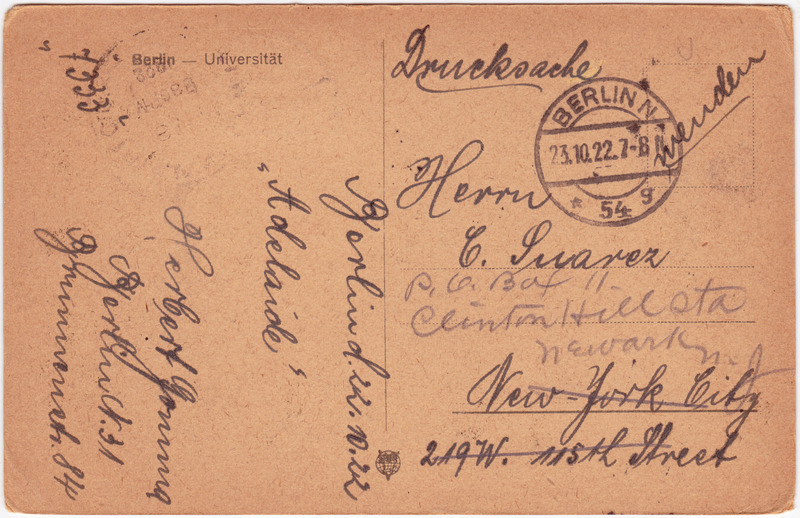 Berlin — Universität
„1333"
Berlin d. 22.10.22
„Adelaide"
Herbert
Berlin N. 31
Brunnenstr. 84
Drucksache
wenden
BERLIN N
23.10.22.7-8 N
* 54 g
Herrn
C. Suarez
P.O. Box 11.
Clinton Hill Sta
Newark N.J
New-York City
219 W. 115th Street